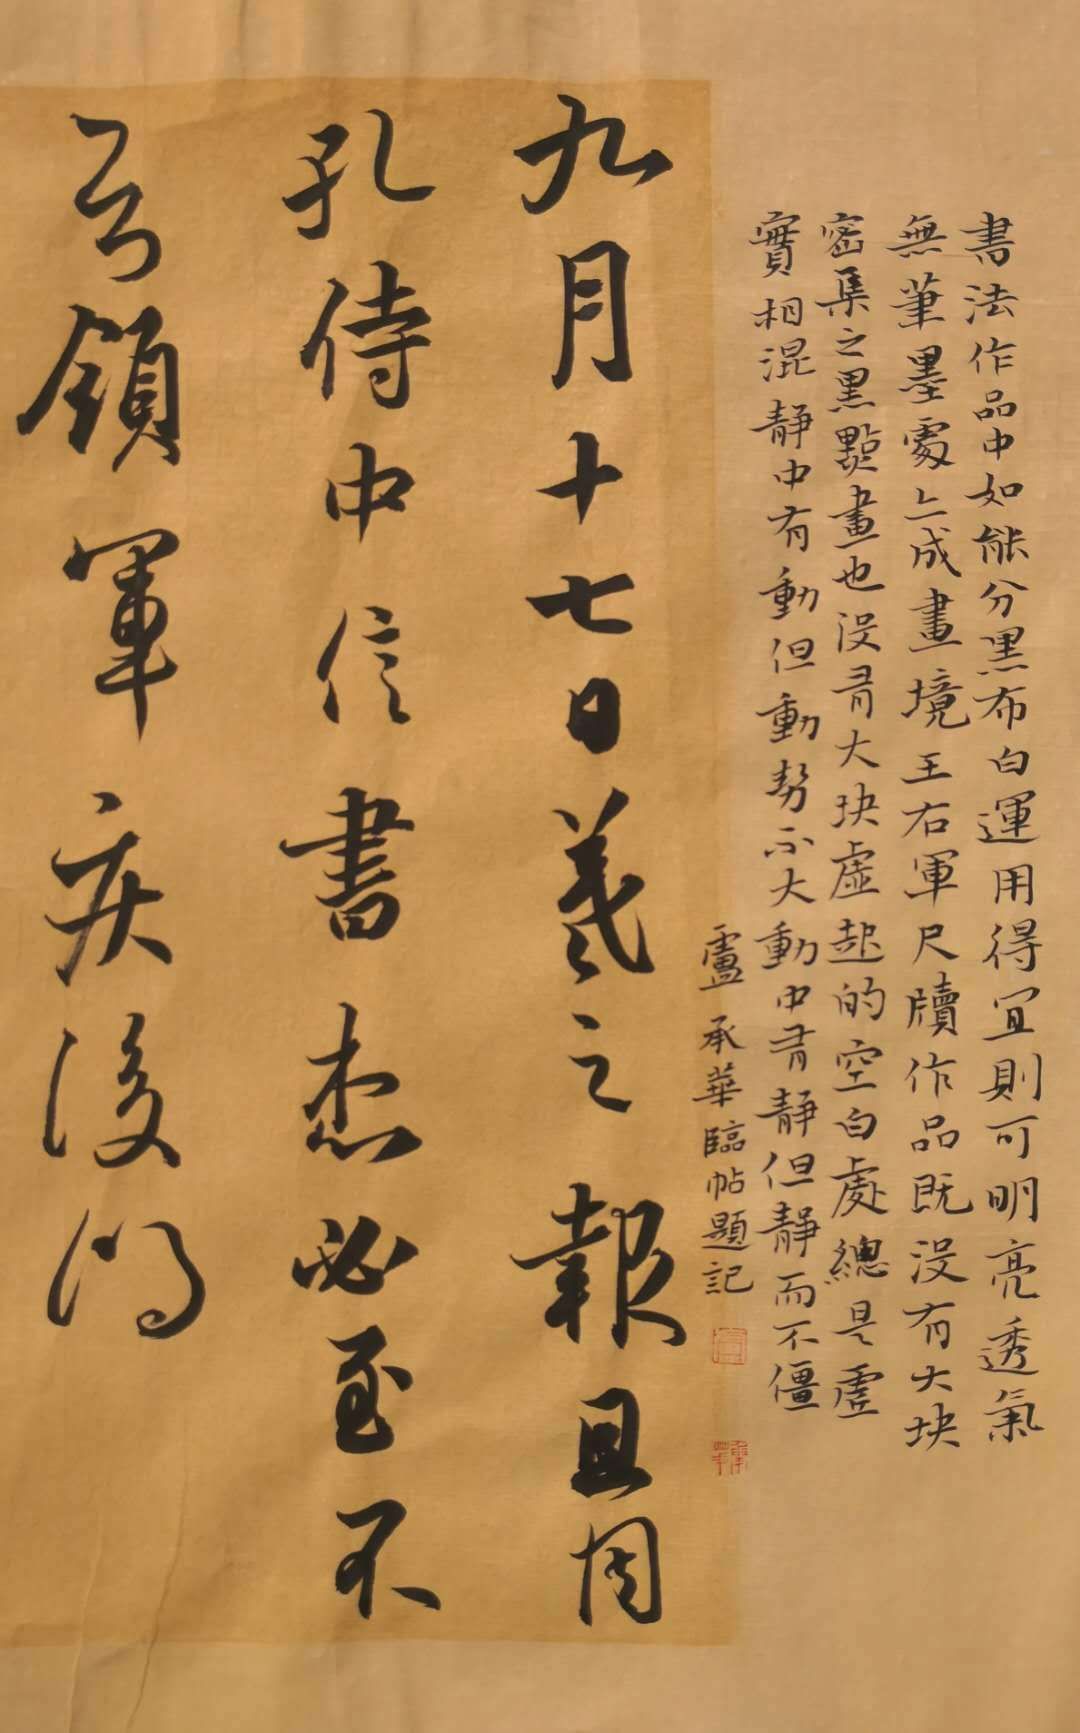 書法作品中如能分黑布白運用得宜則可明亮透氣
無筆墨處亦成畫境王右軍尺牘作品既没有大块
密集之黑點畫也没有大块虛起的空白處總是虛
實相混静中有動但動势不大動中有静但静而不僵
盧承華臨帖題記
九月十七日羲之報且因
孔侍中信書想必至不
知領軍疾後問